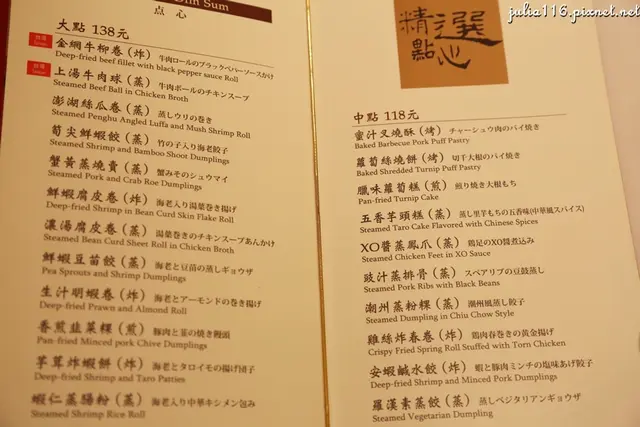 julia116.pixnet.net
Dim Sum
点心
大點 138元
金網牛柳卷(炸) 牛肉ロールのブラックペパーソースがけ
Deep-fried beef fillet with black pepper sauce Roll
上湯牛肉球(蒸) 牛肉ボールのチキンスープ
Steamed Beef Ball in Chicken Broth
澎湖絲瓜卷(蒸) 蒸しウリの巻き
Steamed Penghu Angled Luffa and Mush Shrimp Roll
筍尖鮮蝦餃(蒸) 竹の子入り海老餃子
Steamed Shrimp and Bamboo Shoot Dumplings
蟹黃蒸燒賣(蒸) 蟹みそのシュウマイ
Steamed Pork and Crab Roe Dumplings
鮮蝦腐皮卷(炸) 海老入り湯葉巻き揚げ
Deep-fried Shrimp in Bean Curd Skin Flake Roll
濃湯腐皮卷(蒸) 湯葉巻きのチキンスープあんかけ
Steamed Bean Curd Sheet Roll in Chicken Broth
鮮蝦豆苗餃(蒸) 海老と豆苗の蒸しギョウザ
Pea Sprouts and Shrimp Dumplings
生汁明蝦卷(炸) 海老とアーモンドの巻き揚げ
Deep-fried Prawn and Almond Roll
香煎韭菜粿(煎) 豚肉と韮の焼き饅頭
Pan-fried Minced pork Chive Dumplings
芋茸炸蝦餅(炸) 海老とタロイモの揚げ団子
Deep-fried Shrimp and Taro Patties
蝦仁蒸腸粉(蒸) 海老入り中華キシメン包み
Steamed Shrimp Rice Roll
精選點心
中點 118元
蜜汁叉燒酥(烤) チャーシュウ肉のパイ焼き
Baked Barbecue Pork Puff Pastry
蘿蔔絲燒餅(烤) 切干大根のパイ焼き
Baked Shredded Turnip Puff Pastry
臘味蘿蔔糕(煎) 煎り焼き大根もち
Pan-fried Turnip Cake
五香芋頭糕(蒸) 蒸し里芋もちの五香味(中華風スパイス)
Steamed Taro Cake Flavored with Chinese Spices
XO醬蒸鳳爪(蒸) 鶏足のXO醬煮込み
Steamed Chicken Feet in XO Sauce
豉汁蒸排骨(蒸) スペアリブの豆鼓蒸し
Steamed Pork Ribs with Black Beans
潮州蒸粉粿(蒸) 潮州風蒸し餃子
Steamed Dumpling in Chiu Chow Style
雞絲炸春卷(炸) 鶏肉春巻きの黄金揚げ
Crispy Fried Spring Roll Stuffed with Torn Chicken
安蝦鹹水餃(炸) 蝦と豚肉ミンチの塩味あげ餃子
Deep-fried Shrimp and Minced Pork Dumplings
羅漢素蒸餃(蒸) 蒸しベジタリアンギョウザ
Steamed Vegetarian Dumpling